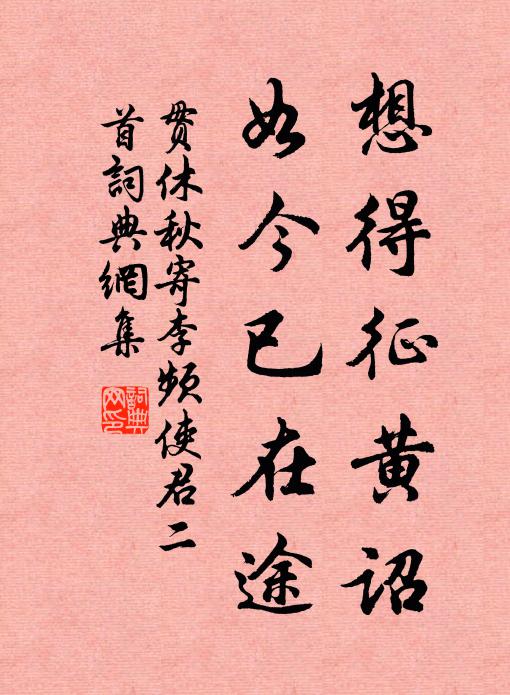 想得征黃詔
如今已在途
貫休秋寄李頻使君二
首詞典網集
詞典
网印